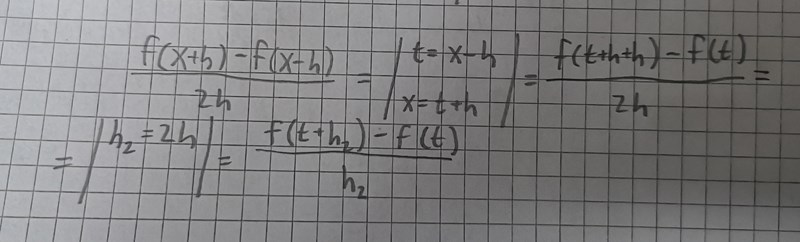 (f(x+h) - f(x-h))/2h = | t = x-h x = t+h | = (f(t+h+h) - f(t))/2h =
= | h₂ = 2h | = (f(t+h₂) - f(t))/h₂